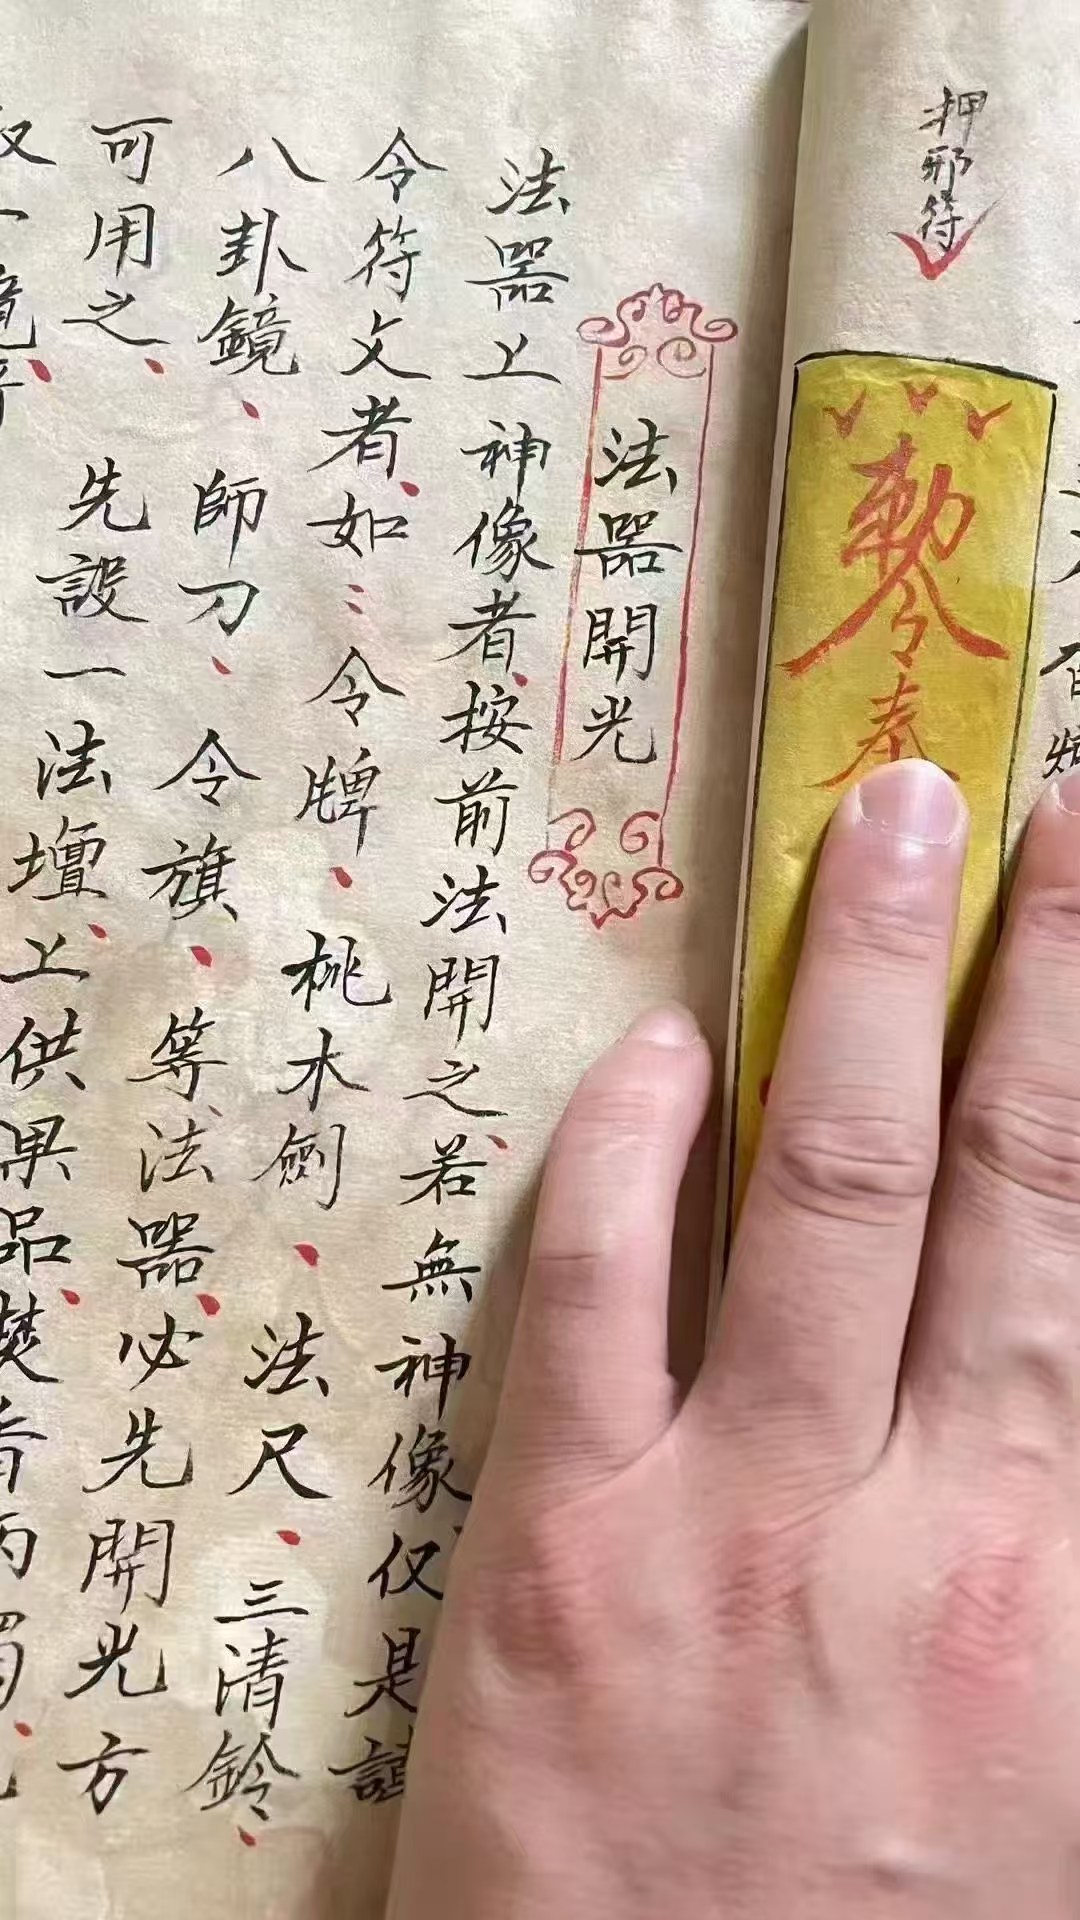 押邪符
勅令
奉
法器開光
法器上神像者、按前法開之、若無神像、仅是
令符文者、如：令牌、桃木劍、法尺、三清鈴、
八卦鏡、師刀、令旗、等法器、必先開光方
可用之、先設一法壇、上供果品、焚香